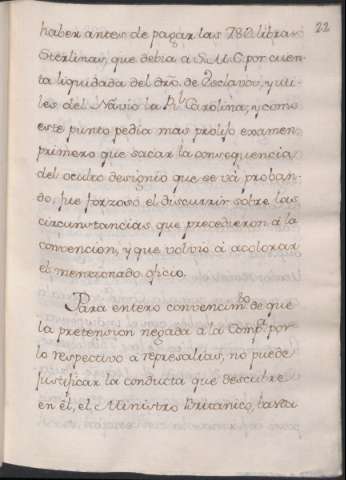 22
haber ántes de pagar las 78℔. libras
Sterlinas, que debia á S. M. C. por cuen
ta liquidada del dro. de Esclavos, y uti-
les del Návio la Rl. Carolina; y como
este punto pedia mas prolijo examen,
primero que sacar la consequencia
del oculto designio que se vá proban-
do, fue forzoso el discurrir sobre las
circunstancias que precedieron á la
convencion, y que volvió á acalorar
el mencionado oficio.
Para entero convencimto. de que
la pretension negada á la Compa. por
lo respectivo a represalias, no puede
justificar la conducta que descubre
en él, el Ministro Britanico, basta